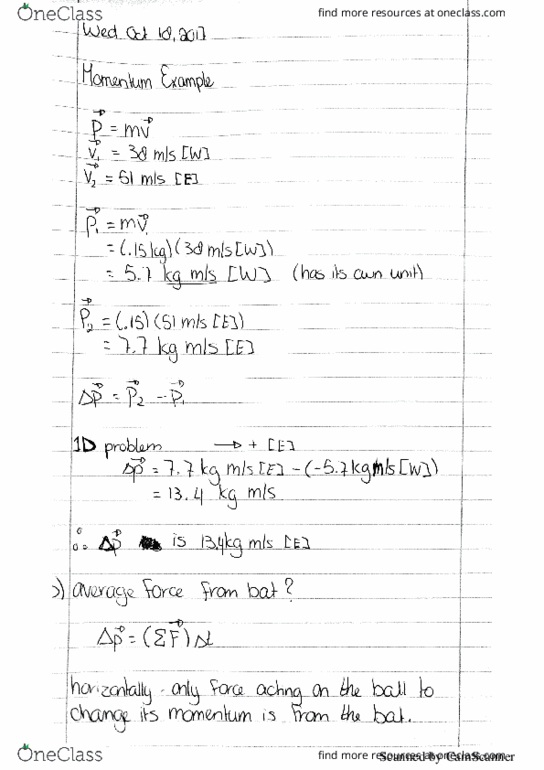 OneClass
find more resources at oneclass.com
Wed Oct 18, 2017
Momentum Example
p⃗ = mv⃗
v⃗₁ = 38 m/s [W]
v⃗₂ = 51 m/s [E]
p⃗₁ = mv⃗₁
= (.15kg)(38 m/s[W])
= 5.7 kg m/s [W] (has its own unit)
p⃗₂ = (.15)(51 m/s [E])
= 7.7 kg m/s [E]
Δp⃗ = p⃗₂ - p⃗₁
1D problem → + [E]
Δp⃗ = 7.7 kg m/s[E] - (-5.7kg m/s[W])
= 13.4 kg m/s
∴ Δp⃗ is 13.4kg m/s [E]
) average force from bat?
Δp⃗ = (ΣF⃗)Δt
horizontally - only force acting on the ball to
change its momentum is from the bat.
OneClass
find more resources at oneclass.com
Scanned by CamScanner